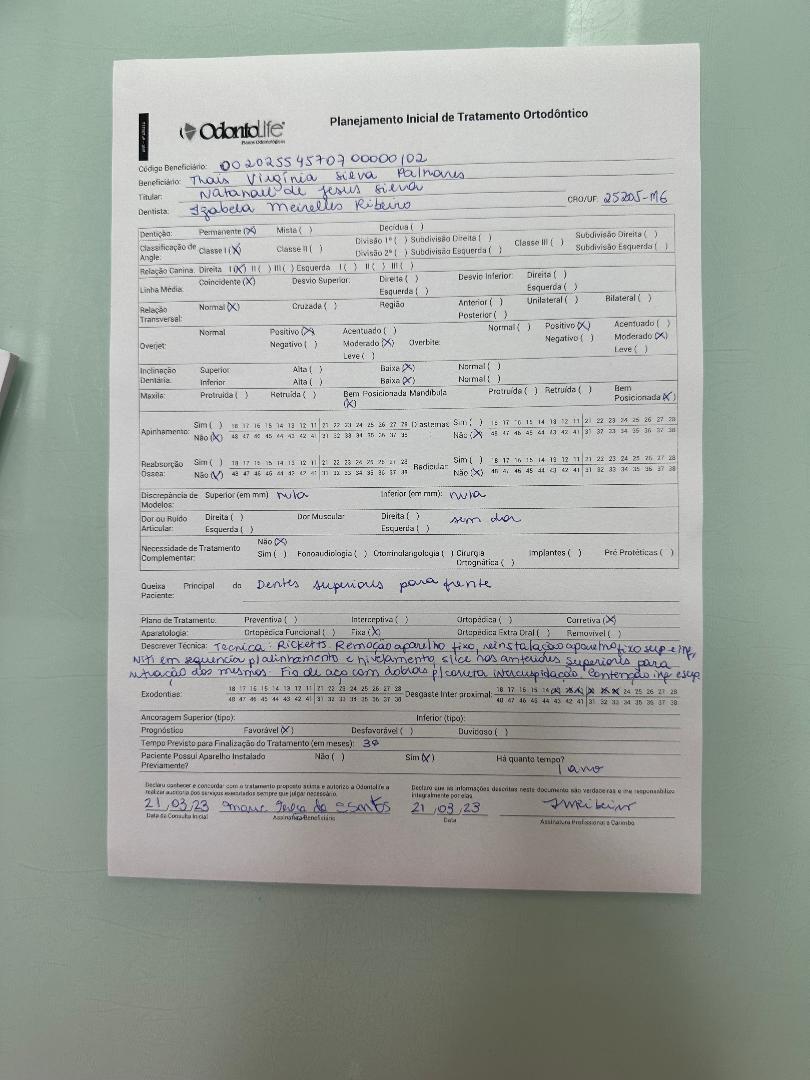 OdontoLife
Planos Odontológicos
Planejamento Inicial de Tratamento Ortodôntico
Código Beneficiário: 00202554570700000/02
Beneficiário: Thais Virgínia Silva Palmares
Titular: Natanael de Jesus Silva
Dentista: Izabela Meirelles Ribeiro CRO/UF: 25205-MG
Dentição: Permanente (X) Mista ( ) Decídua ( )
Classificação de Angle: Classe I (X) Classe II ( ) Divisão 1ª ( ) Subdivisão Direita ( ) Classe III ( ) Subdivisão Direita ( )
Divisão 2ª ( ) Subdivisão Esquerda ( ) Subdivisão Esquerda ( )
Relação Canina: Direita I (X) II ( ) III ( ) Esquerda I ( ) II ( ) III ( )
Linha Média: Coincidente (X) Desvio Superior: Direita ( ) Desvio Inferior: Direita ( )
Esquerda ( ) Esquerda ( )
Relação Transversal: Normal (X) Cruzada ( ) Região Anterior ( ) Unilateral ( ) Bilateral ( )
Posterior ( )
Overjet: Normal Positivo (X) Acentuado ( ) Overbite: Normal ( ) Positivo (X) Acentuado ( )
Negativo ( ) Moderado (X) Negativo ( ) Moderado (X)
Leve ( ) Leve ( )
Inclinação Dentária: Superior Alta ( ) Baixa (X) Normal ( )
Inferior Alta ( ) Baixa (X) Normal ( )
Maxila: Protruída ( ) Retruída ( ) Bem Posicionada (X) Mandíbula Protruída ( ) Retruída ( ) Bem Posicionada (X)
Apinhamento: Sim ( ) 18 17 16 15 14 13 12 11 21 22 23 24 25 26 27 28 Diastemas Sim ( ) 18 17 16 15 14 13 12 11 21 22 23 24 25 26 27 28
Não (X) 48 47 46 45 44 43 42 41 31 32 33 34 35 36 37 38 Não (X) 48 47 46 45 44 43 42 41 31 32 33 34 35 36 37 38
Reabsorção Óssea: Sim ( ) 18 17 16 15 14 13 12 11 21 22 23 24 25 26 27 28 Radicular Sim ( ) 18 17 16 15 14 13 12 11 21 22 23 24 25 26 27 28
Não (X) 48 47 46 45 44 43 42 41 31 32 33 34 35 36 37 38 Não (X) 48 47 46 45 44 43 42 41 31 32 33 34 35 36 37 38
Discrepância de Modelos: Superior (em mm) nula Inferior (em mm): nula
Dor ou Ruído Articular: Direita ( ) Dor Muscular Direita ( ) sem dor
Esquerda ( ) Esquerda ( )
Necessidade de Tratamento Complementar: Não (X)
Sim ( ) Fonoaudiologia ( ) Otorrinolangologia ( ) Cirurgia Ortognática ( ) Implantes ( ) Pré Protéticas ( )
Queixa Principal do Paciente: Dentes superiores para frente
Plano de Tratamento: Preventiva ( ) Interceptiva ( ) Ortopédica ( ) Corretiva (X)
Aparatologia: Ortopédica Funcional ( ) Fixa (X) Ortopédica Extra Oral ( ) Removível ( )
Descrever Técnica: Tecnica: Ricketts. Remoção aparelho fixo, reinstalação aparelho fixo sup e inf,
Niti em sequencia p/ alinhamento e nivelamento, slice nos anteriores superiores para
dos mesmos. Fio de aço com dobras p/ correta intercuspidação. Contenção inf e sup
Exodontias: 18 17 16 15 14 13 12 11 21 22 23 24 25 26 27 28 Desgaste Inter proximal: 18 17 16 15 14 X X X X X X 24 25 26 27 28
48 47 46 45 44 43 42 41 31 32 33 34 35 36 37 38 48 47 46 45 44 43 42 41 31 32 33 34 35 36 37 38
Ancoragem Superior (tipo): Inferior (tipo):
Prognóstico Favorável (X) Desfavorável ( ) Duvidoso ( )
Tempo Previsto para Finalização do Tratamento (em meses): 30
Paciente Possui Aparelho Instalado Previamente? Não ( ) Sim (X) Há quanto tempo?
1 ano
Declaro conhecer e concordar com o tratamento proposto acima e autorizo a Odontolife a
realizar auditoria dos serviços executados sempre que julgar necessário.
Declaro que as informações descritas neste documento são verdadeiras e me responsabilizo
integralmente por elas.
21/03/23 21/03/23
Data da Consulta Inicial Assinatura Beneficiário Data Assinatura Profissional e Carimbo